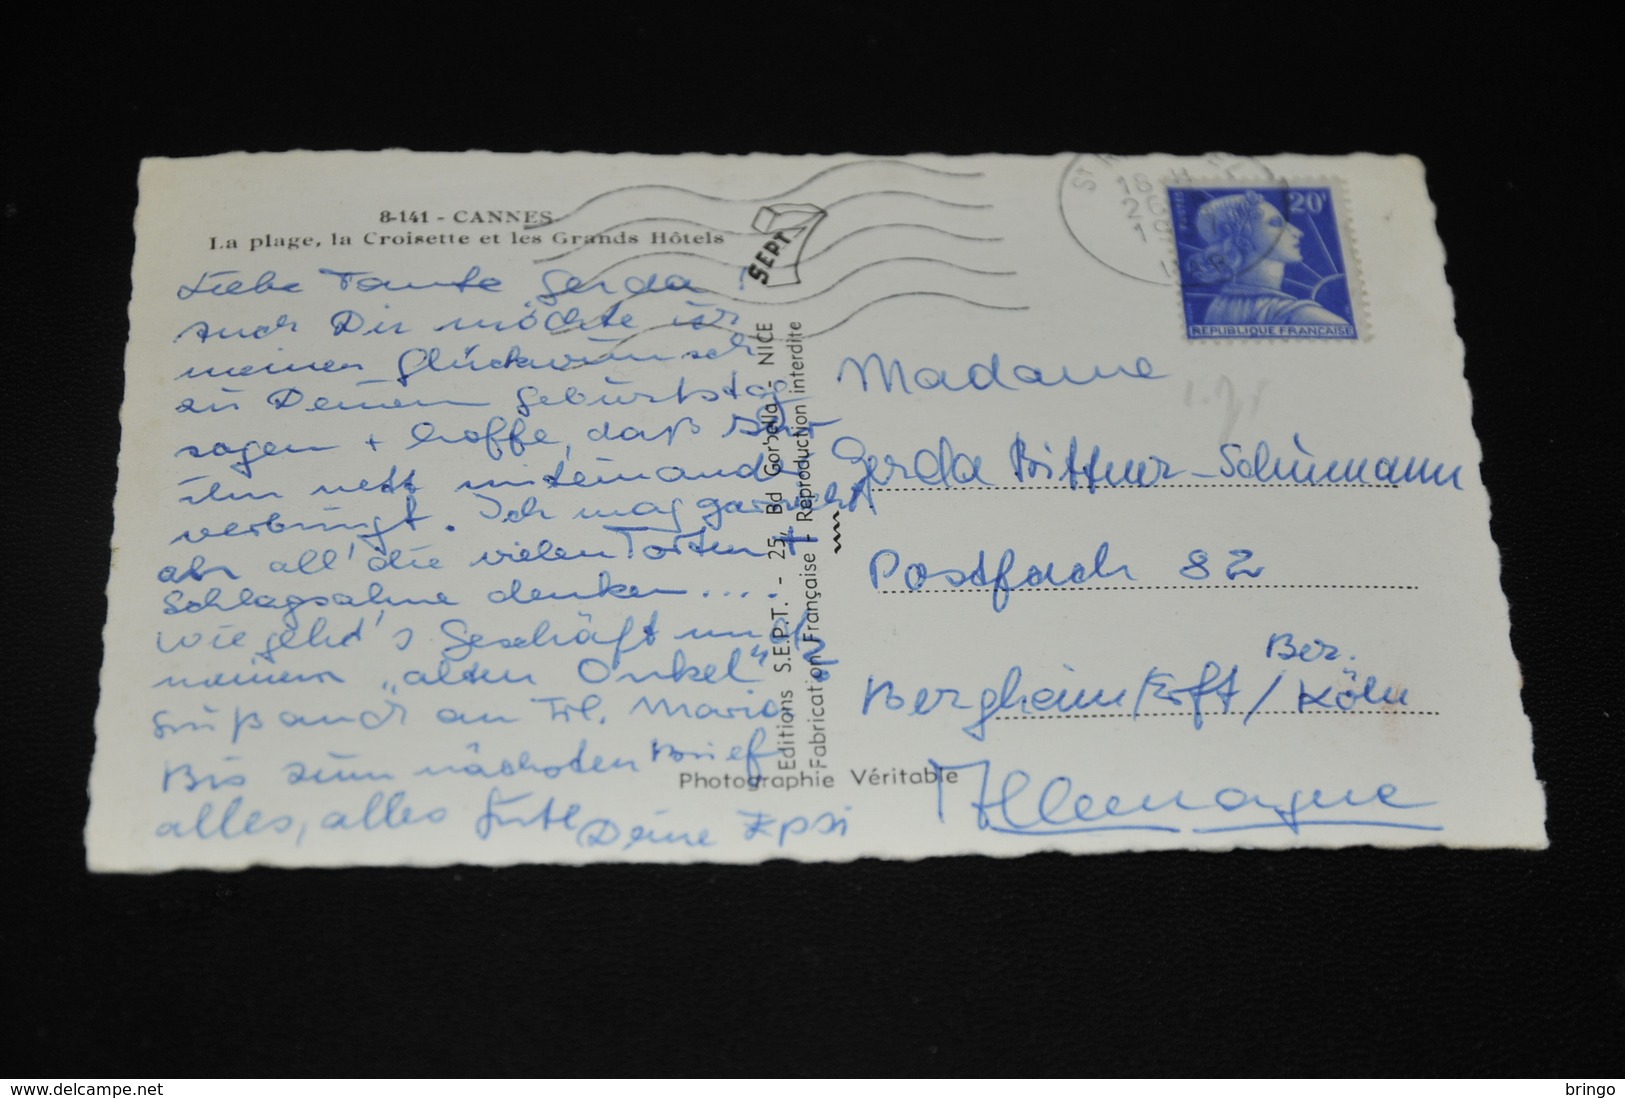 8-141 - CANNES
La plage, la Croisette et les Grands Hôtels
Liebe Tante Gerda!
Auch Dir möchte ich
meinen Glückwunsch
zu Deinem Geburtstag
sagen + hoffe, daß
ihr nett miteinander
verbringt. Ich mag garnicht
an all' die vielen Torten +
Schlagsahne denken....
Wie geht's Geschäft und
meinem „alten Onkel"?
Gruß auch an Frl. Maria
Bis zum nächsten Brief
alles, alles Gute Deine Epsi
SEPT
Editions S.E.P.T. - 25, Bd Gorbella - NICE
Fabrication Française - Reproduction interdite
Photographie Véritable
18 H
POSTES
20F
REPUBLIQUE FRANÇAISE
Madame
Gerda Bittner-Schümann
Postfach 82
Bez.
Bergheim/Erft/Köln
Allemagne
www.delcampe.net
bringo